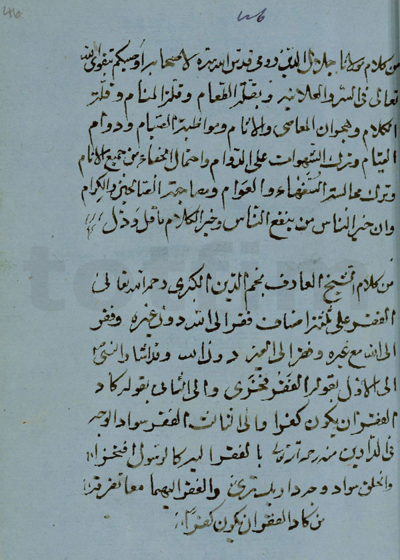 46
من كلام مولانا جلال الدين رومي قدس الله سره لاصحابه أوصيكم بتقوى الله
تعالى في السر والعلانية وبقلة الطعام وقلة المنام وقلة
الكلام وهجران المعاصي والآثام ومواظبة الصيام ودوام
القيام وترك الشهوات على الدوام واحتمال الجفاء من جميع الانام
وترك مجالسة السفهاء والعوام ومصاحبة الصالحين والكرام
وان خير الناس من ينفع الناس وخير الكلام ما قل ودل
من كلام الشيخ العارف نجم الدين الكبرى رحمه الله تعالى
الفقر على ثلثة اصناف فقر الى الله دون غيره وفقر
الى الله مع غيره وفقر الى الغير دون الله وقد اشار النبي
الى الاول بقوله الفقر فخري والى الثاني بقوله كاد
الفقر ان يكون كفرا والى الثالث الفقر سواد الوجه
في الدارين
بالفقر
الرسول افتخر
والخلق سواد وجه
والفقر اليهما معا
من كاد الفقر ان يكون كفرا